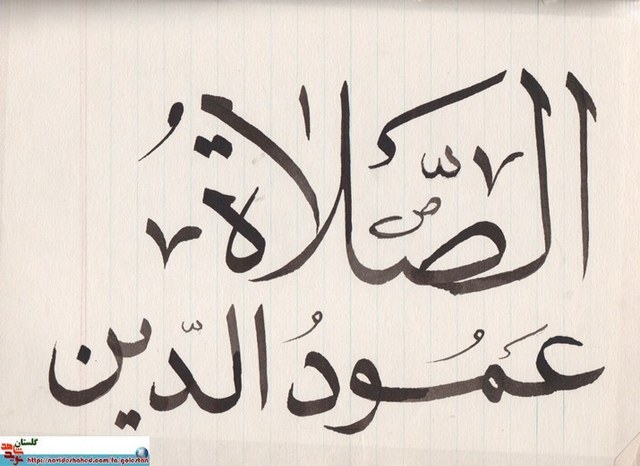 الصَّلاةُ
عَمُودُ الدّين
گلستان
https://navideshahed.com/fa/golestan